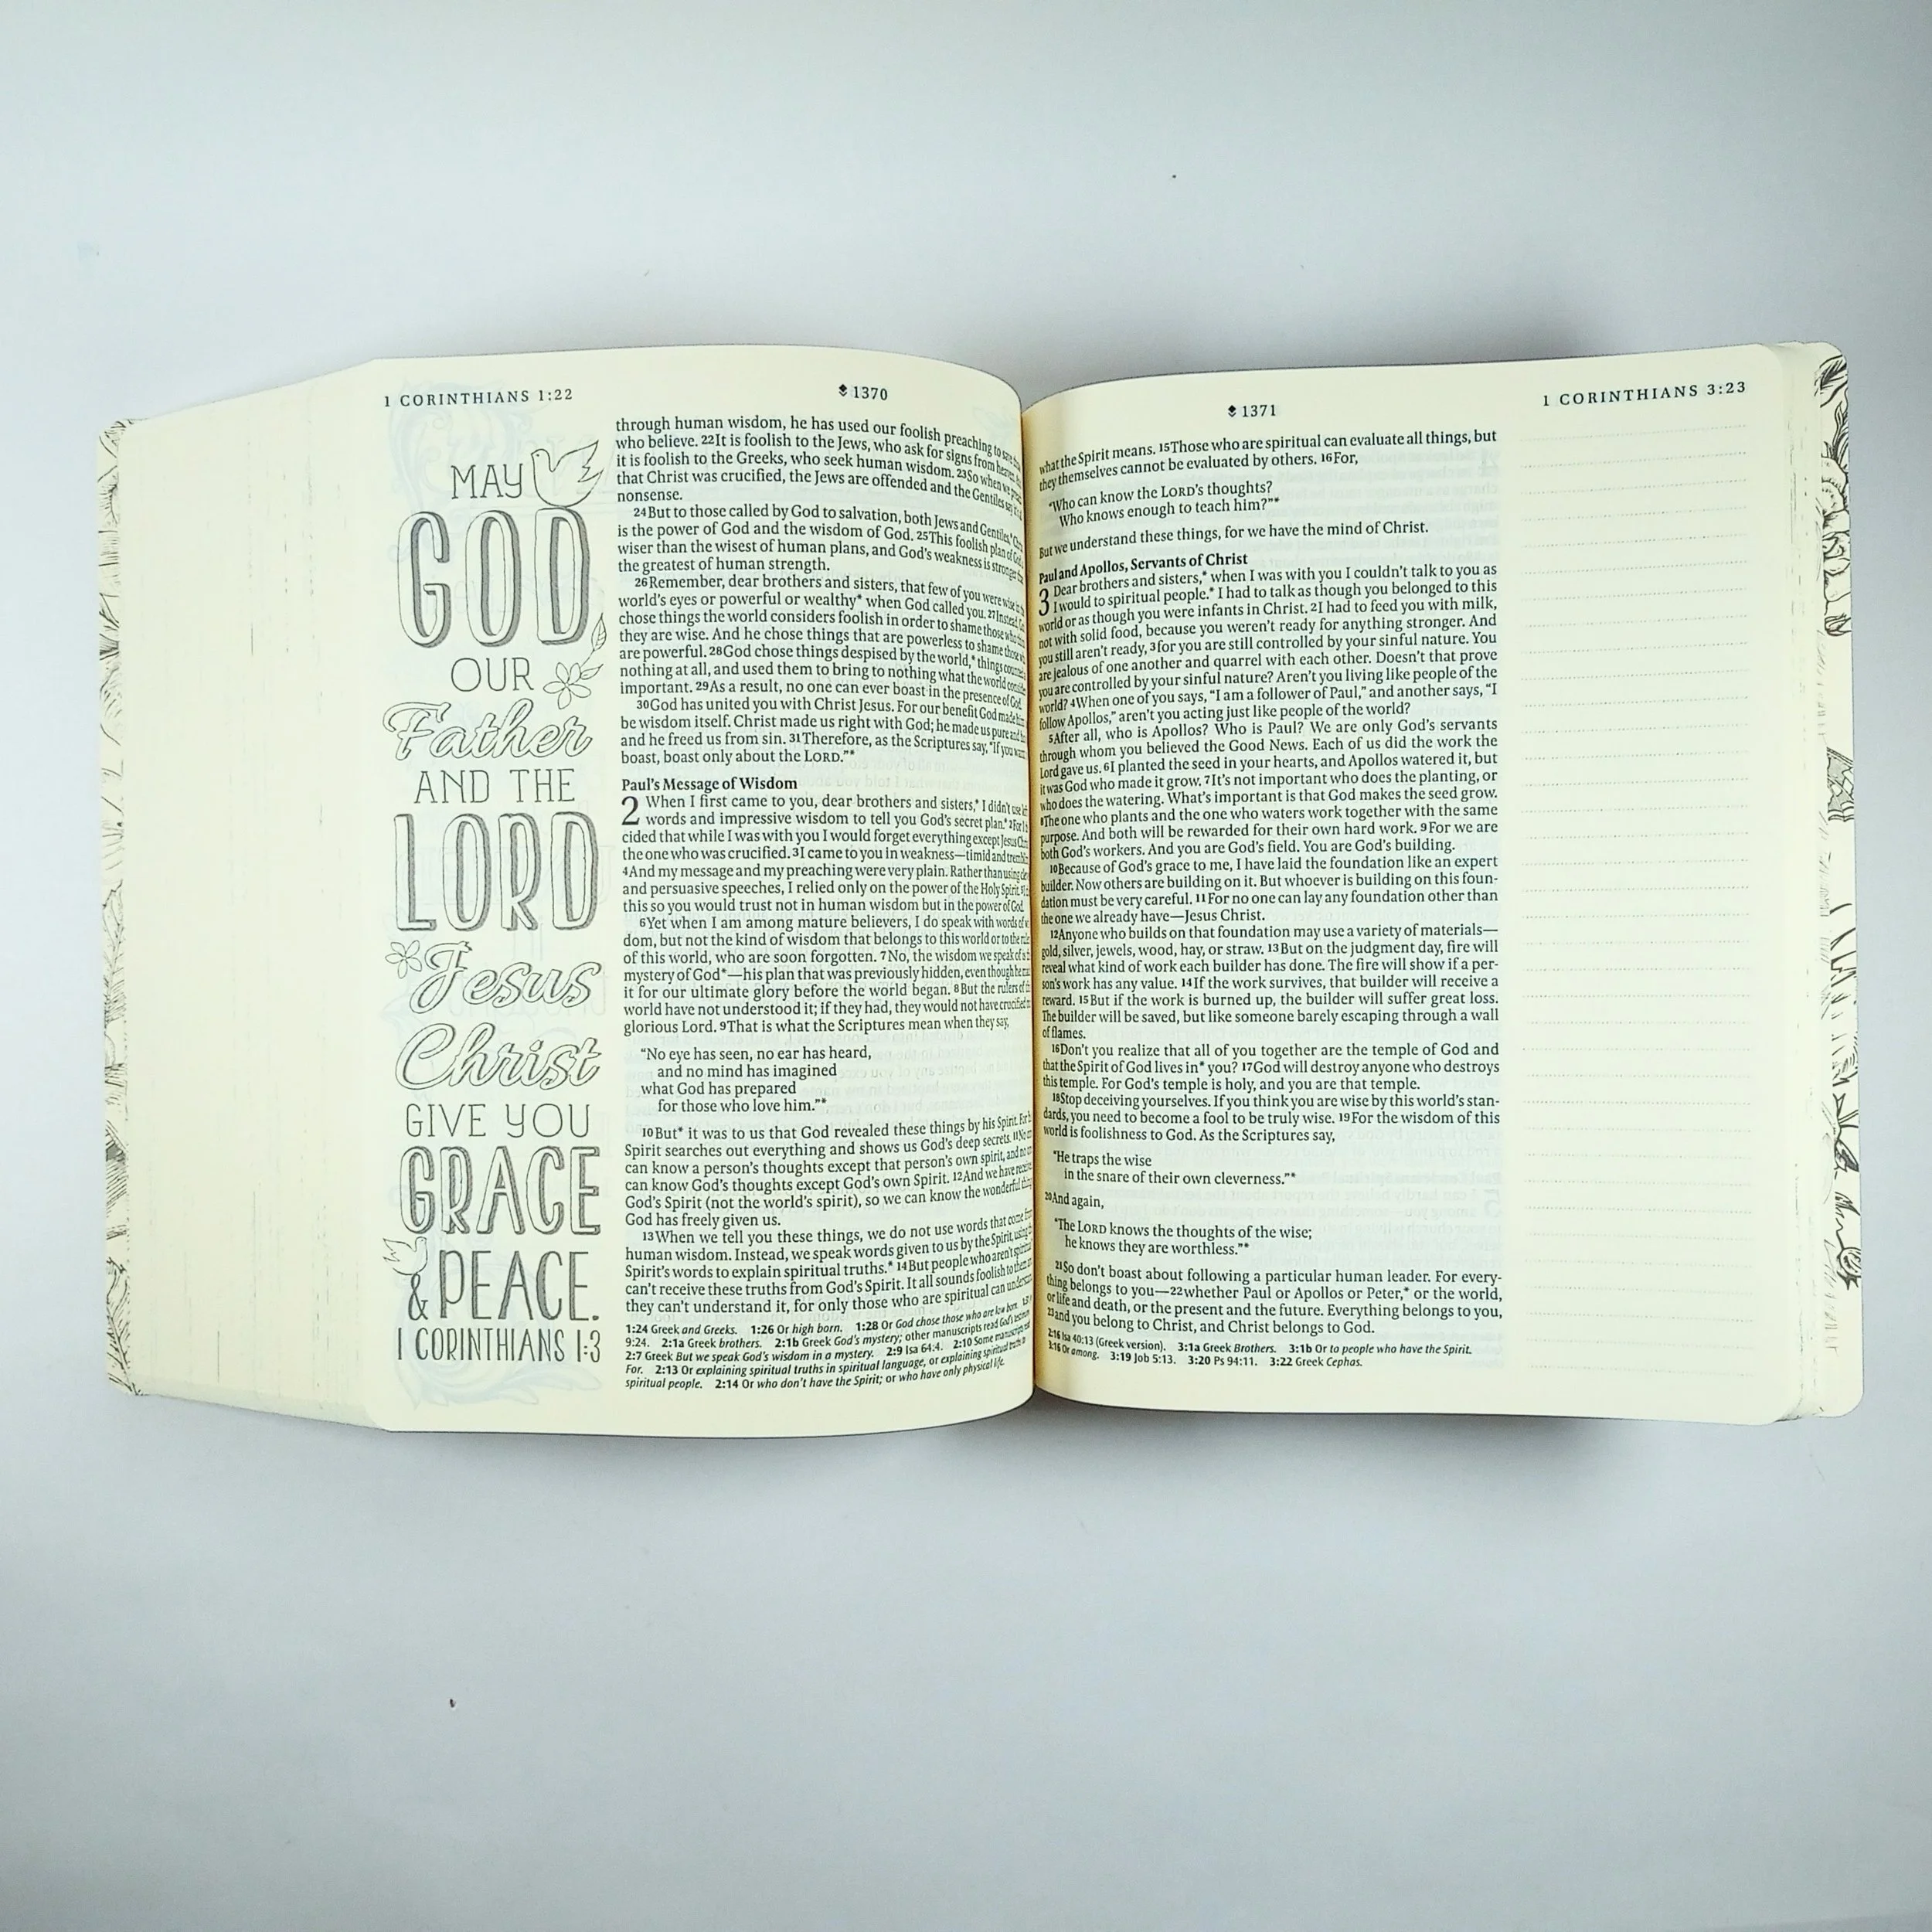 1 CORINTHIANS 1:22
1370
MAY
GOD,
OUR
Father
AND THE
LORD
Jesus
Christ
GIVE YOU
GRACE
& PEACE.
1 CORINTHIANS 1:3
through human wisdom, he has used our foolish preaching to save
who believe. 22It is foolish to the Jews, who ask for signs from heaven.
it is foolish to the Greeks, who seek human wisdom. 23So when we
that Christ was crucified, the Jews are offended and the Gentiles say
nonsense.
24But to those called by God to salvation, both Jews and Gentiles,*
is the power of God and the wisdom of God. 25This foolish plan of God
wiser than the wisest of human plans, and God's weakness is stronger
the greatest of human strength.
26Remember, dear brothers and sisters, that few of you were wise
world's eyes or powerful or wealthy* when God called you. 27Instead,
chose things the world considers foolish in order to shame those who
they are wise. And he chose things that are powerless to shame those
are powerful. 28God chose things despised by the world,* things
nothing at all, and used them to bring to nothing what the world
important. 29As a result, no one can ever boast in the presence of God.
30God has united you with Christ Jesus. For our benefit God made him
be wisdom itself. Christ made us right with God; he made us pure and
and he freed us from sin. 31Therefore, as the Scriptures say, "If you
boast, boast only about the LORD."*
Paul's Message of Wisdom
2 When I first came to you, dear brothers and sisters,* I didn't use
words and impressive wisdom to tell you God's secret plan.* 2For I
cided that while I was with you I would forget everything except Jesus
the one who was crucified. 3I came to you in weakness—timid and
4And my message and my preaching were very plain. Rather than using
and persuasive speeches, I relied only on the power of the Holy Spirit.
this so you would trust not in human wisdom but in the power of God.
6Yet when I am among mature believers, I do speak with words of
dom, but not the kind of wisdom that belongs to this world or to the
of this world, who are soon forgotten. 7No, the wisdom we speak of is
mystery of God*—his plan that was previously hidden, even though he
it for our ultimate glory before the world began. 8But the rulers of
world have not understood it; if they had, they would not have crucified
glorious Lord. 9That is what the Scriptures mean when they say,
"No eye has seen, no ear has heard,
and no mind has imagined
what God has prepared
for those who love him."*
10But* it was to us that God revealed these things by his Spirit. For
Spirit searches out everything and shows us God's deep secrets. 11No
can know a person's thoughts except that person's own spirit, and no
can know God's thoughts except God's own Spirit. 12And we have
God's Spirit (not the world's spirit), so we can know the wonderful
God has freely given us.
13When we tell you these things, we do not use words that come
human wisdom. Instead, we speak words given to us by the Spirit, using
Spirit's words to explain spiritual truths.* 14But people who aren't
can't receive these truths from God's Spirit. It all sounds foolish to them
they can't understand it, for only those who are spiritual can
1:24 Greek and Greeks. 1:26 Or high born. 1:28 Or God chose those who are low born.
9:24. 2:1a Greek brothers. 2:1b Greek God's mystery; other manuscripts read God's
2:7 Greek But we speak God's wisdom in a mystery. 2:9 Isa 64:4. 2:10 Some manuscripts
For. 2:13 Or explaining spiritual truths in spiritual language, or explaining spiritual truths
spiritual people. 2:14 Or who don't have the Spirit; or who have only physical life.
1371
1 CORINTHIANS 3:23
what the Spirit means. 15Those who are spiritual can evaluate all things, but
they themselves cannot be evaluated by others. 16For,
"Who can know the LORD's thoughts?
Who knows enough to teach him?"*
But we understand these things, for we have the mind of Christ.
Paul and Apollos, Servants of Christ
3 Dear brothers and sisters,* when I was with you I couldn't talk to you as
I would to spiritual people.* I had to talk as though you belonged to this
world or as though you were infants in Christ. 2I had to feed you with milk,
not with solid food, because you weren't ready for anything stronger. And
you still aren't ready, 3for you are still controlled by your sinful nature. You
are jealous of one another and quarrel with each other. Doesn't that prove
you are controlled by your sinful nature? Aren't you living like people of the
world? 4When one of you says, "I am a follower of Paul," and another says, "I
follow Apollos," aren't you acting just like people of the world?
5After all, who is Apollos? Who is Paul? We are only God's servants
through whom you believed the Good News. Each of us did the work the
Lord gave us. 6I planted the seed in your hearts, and Apollos watered it, but
it was God who made it grow. 7It's not important who does the planting, or
who does the watering. What's important is that God makes the seed grow.
8The one who plants and the one who waters work together with the same
purpose. And both will be rewarded for their own hard work. 9For we are
both God's workers. And you are God's field. You are God's building.
10Because of God's grace to me, I have laid the foundation like an expert
builder. Now others are building on it. But whoever is building on this foun-
dation must be very careful. 11For no one can lay any foundation other than
the one we already have—Jesus Christ.
12Anyone who builds on that foundation may use a variety of materials—
gold, silver, jewels, wood, hay, or straw. 13But on the judgment day, fire will
reveal what kind of work each builder has done. The fire will show if a per-
son's work has any value. 14If the work survives, that builder will receive a
reward. 15But if the work is burned up, the builder will suffer great loss.
The builder will be saved, but like someone barely escaping through a wall
of flames.
16Don't you realize that all of you together are the temple of God and
that the Spirit of God lives in* you? 17God will destroy anyone who destroys
this temple. For God's temple is holy, and you are that temple.
18Stop deceiving yourselves. If you think you are wise by this world's stan-
dards, you need to become a fool to be truly wise. 19For the wisdom of this
world is foolishness to God. As the Scriptures say,
"He traps the wise
in the snare of their own cleverness."*
20And again,
"The LORD knows the thoughts of the wise;
he knows they are worthless."*
21So don't boast about following a particular human leader. For every-
thing belongs to you—22whether Paul or Apollos or Peter,* or the world,
or life and death, or the present and the future. Everything belongs to you,
23and you belong to Christ, and Christ belongs to God.
2:16 Isa 40:13 (Greek version). 3:1a Greek Brothers. 3:1b Or to people who have the Spirit.
3:16 Or among. 3:19 Job 5:13. 3:20 Ps 94:11. 3:22 Greek Cephas.